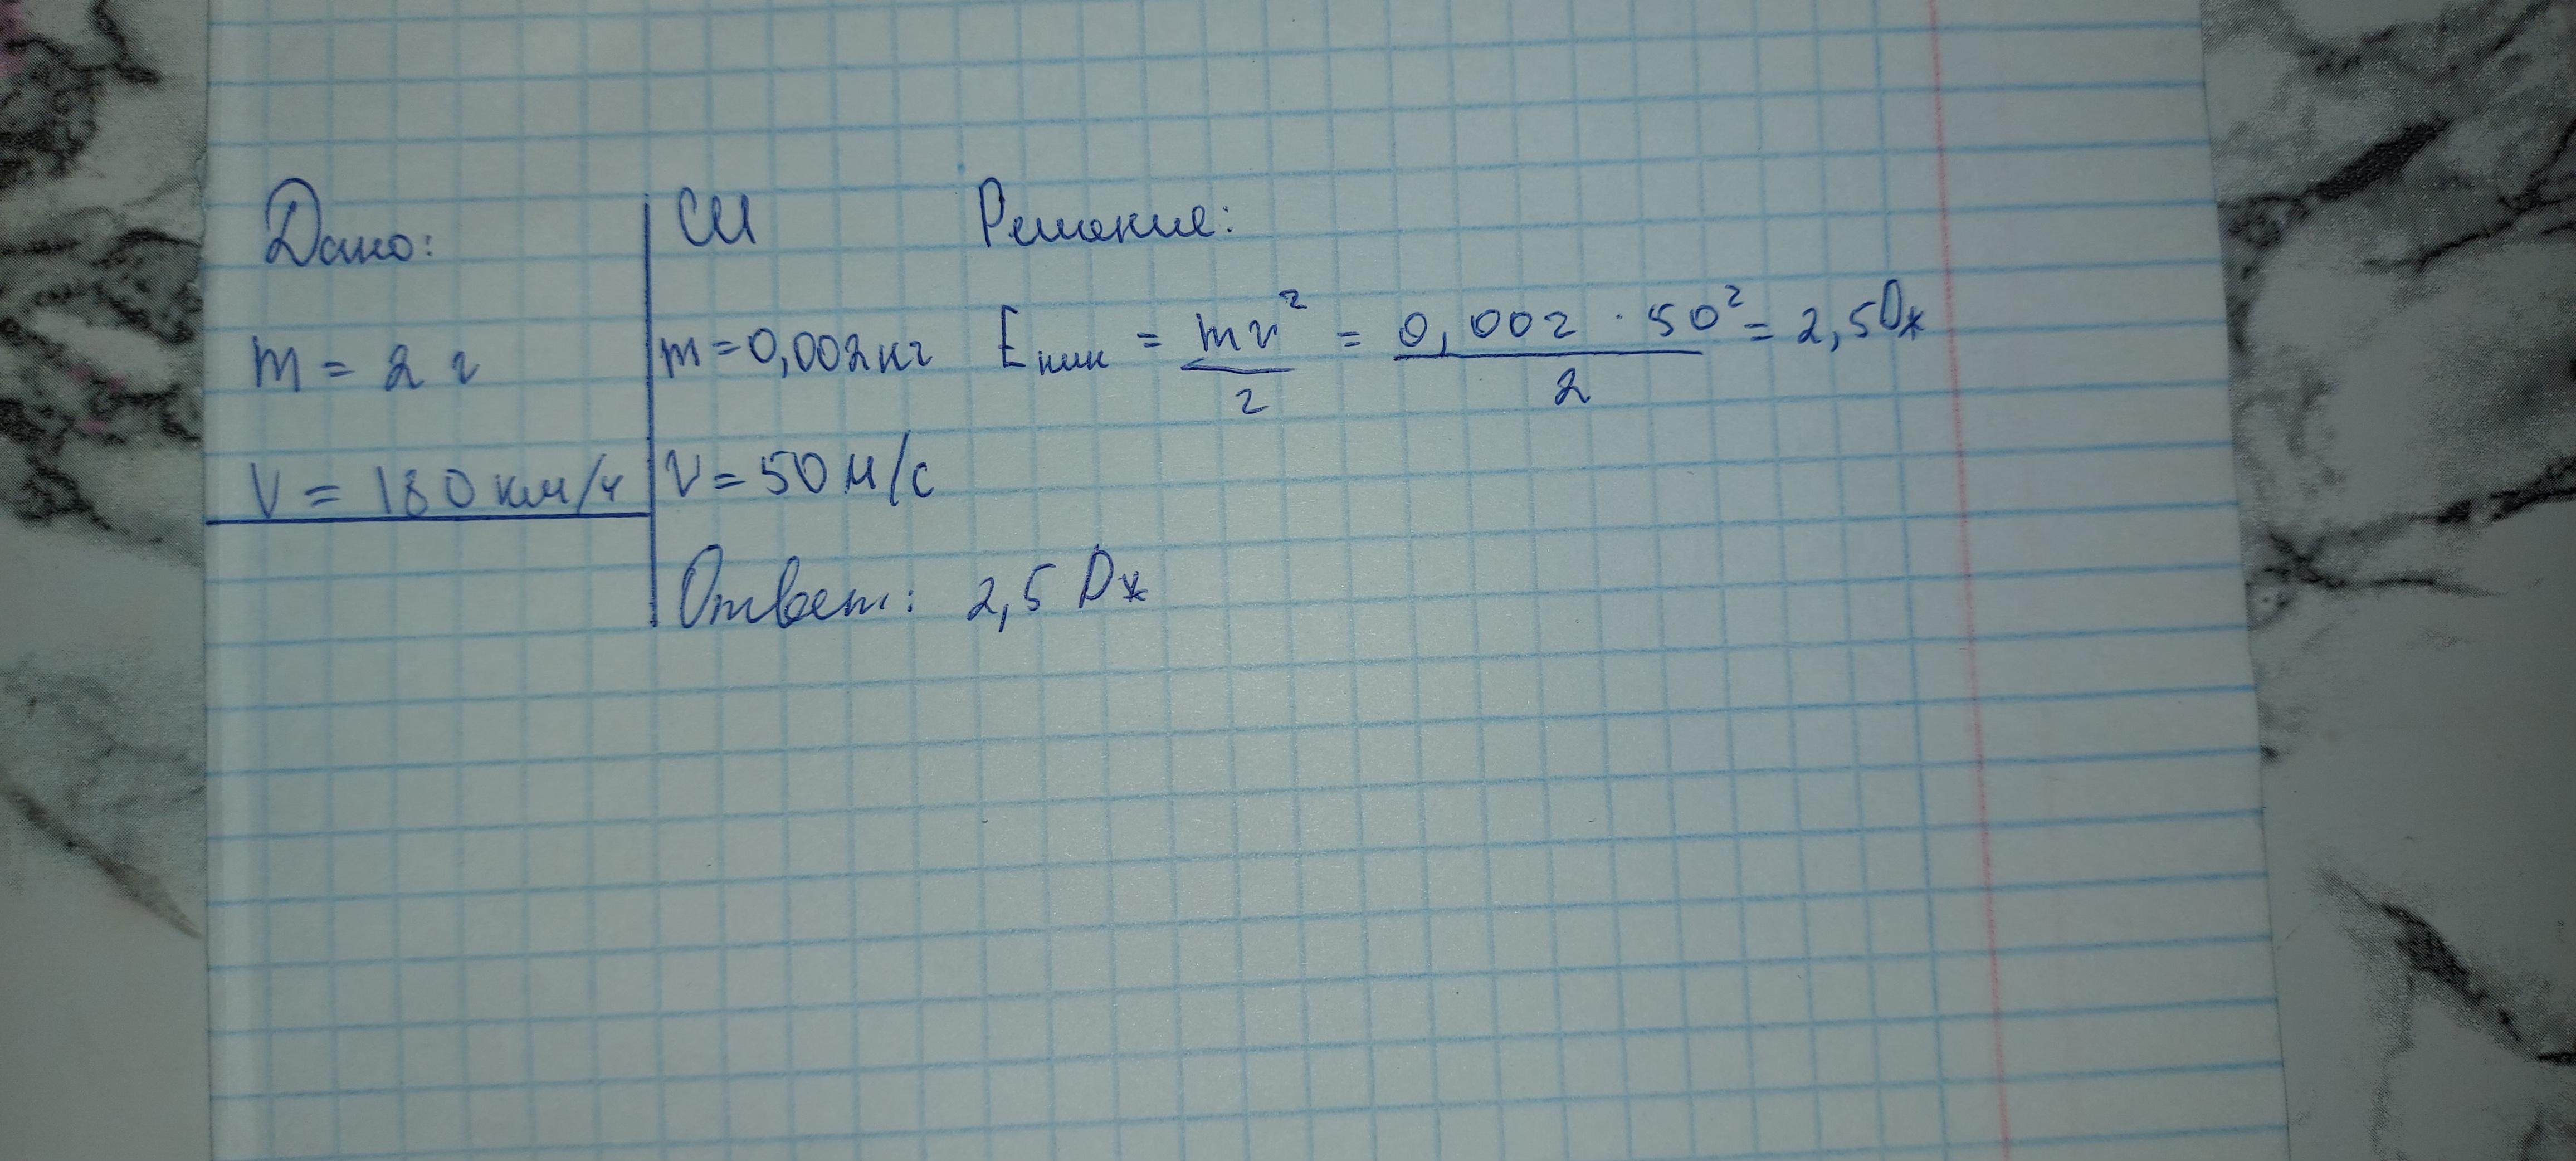 Дано:
m = 2 г
V = 180 км/ч
СИ
m = 0,002 кг
V = 50 м/с
Решение:
Eкин = mv²/2 = 0,002 · 50²/2 = 2,5 Дж
Ответ: 2,5 Дж